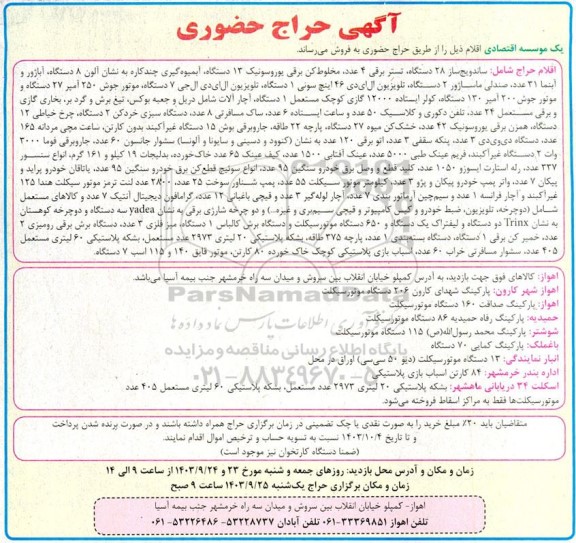 آگهی حراج حضوری
یک موسسه اقتصادی اقلام ذیل را از طریق حراج حضوری به فروش می‌رساند.
اقلام حراج شامل: ساندویچ‌ساز ۲۸ دستگاه، تستر برقی ۴ عدد، مخلوط‌کن برقی یوروسونیک ۱۳ دستگاه، آبمیوه‌گیری چندکاره به نشان آلون ۸ دستگاه، آباژور و
آینما ۳۱ عدد، صندلی ماساژور ۲ دستگاه، تلویزیون ال‌ای‌دی ۴۶ اینچ سونی ۱ دستگاه، تلویزیون ال‌ای‌دی ال‌جی ۷ دستگاه، موتور جوش ۲۵۰ آمپر ۲۷ دستگاه و
موتور جوش ۲۰۰ آمپر ۱۳۰ دستگاه، کولر ایستاده ۱۲۰۰۰ گازی کوچک مستعمل ۱ دستگاه، آچار آلات شامل دریل و جعبه بوکس، تیغ برش و گرد بر، بخاری گازی
و برقی مستعمل ۲۴ عدد، تلفن دکوری و کلاسیک ۵۰ عدد و ساعت ایستاده ۶ عدد، ساک مسافرتی ۸ عدد، دستگاه سبزی خردکن ۲ دستگاه، چرخ خیاطی ۱۲
دستگاه، همزن برقی یوروسونیک ۴۲ عدد، خشک‌کن میوه ۲۷ دستگاه، پارچه ۲۲ طاقه، جاروبرقی بوش ۱۵ دستگاه غیرآکبند بدون کارتن، ساعت مچی مردانه ۱۶۵
دستگاه دی‌وی‌دی ۳ عدد، پنکه سقفی ۳ عدد، اتو برقی ۱۲۰ عدد به نشان (کنوود و دسینی و سایونا و آلونسا) سشوار جانسون ۶۰ عدد، جاروبرقی فوما ۳۰۰۰
وات ۲ دستگاه غیرآکبند، فریم عینک طبی ۵۰۰۰ عدد، عینک آفتابی ۱۵۰۰ عدد، کیف عینک ۶۵ عدد خاک‌خورده، بدلیجات ۱۹ کیلو و ۱۶۱ گرم، انواع سنسور
۳۳۷ عدد، رله استارت ایسوزو ۱۰۵۰ عدد، کلید قطع و وصل برق خودرو سنگین ۹۵ عدد، انواع سوئیچ قطع‌کن برق خودرو سنگین ۹۵ عدد، یاتاقان خودرو پراید و
پیکان ۷ عدد، واتر پمپ خودرو پیکان و پژو ۳ عدد، زنجیر موتور سیکلت ۵۵ عدد، پمپ شناور سوخت ۲۵ عدد، ۲۸۰۰ عدد لنت ترمز موتور سیکلت هندا ۱۲۵
غیرآکبند و آچار فرانسه ۱ عدد و سیم‌چین رپاتور بدی ۷ عدد، آچار لوله‌گیر ۳ عدد و قیچی باغبانی ۱۲ عدد، گرامافون دیجیتال آنتیک ۷ عدد و کالاهای مستعمل
شامل (دوچرخه، تلویزیون، ضبط خودرو و کیس کامپیوتر و قیچی سیم‌بری و غیره..) و دو چرخه شارژی برقی به نشان yadea سه دستگاه و دوچرخه کوهستان
به نشان Trinx دو دستگاه و لیفتراک یک دستگاه و ۶۵۰ دستگاه موتورسیکلت، دستگاه برش کالباس ۱ دستگاه، میز فلزی ۳ عدد، دستگاه برش برقی رومیزی ۲
عدد، خمیر کن برقی ۱ دستگاه، دستگاه بسته‌بندی ۱ عدد، پارچه ۳۷۵ طاقه، بشکه پلاستیکی ۲۰ لیتری ۲۹۷۳ عدد مستعمل، بشکه پلاستیکی ۶۰ لیتری مستعمل
۴۰۵ عدد، سشوار مسافرتی خراب ۶۰ عدد، اسباب بازی پلاستیکی کوچک خاک خورده ۸۰ کارتن، موتور قایق ۱۴۰ و ۱۱۵ اسب ۷ دستگاه.
اهواز: کالاهای فوق جهت بازدید، به آدرس کمپلو خیابان انقلاب بین سروش و میدان سه راه خرمشهر جنب بیمه آسیا می‌باشد.
اهواز شهر کارون: پارکینگ شهدای کارون ۲۰۶ دستگاه موتورسیکلت
اهواز: پارکینگ صداقت ۱۶۰ دستگاه موتورسیکلت
حمیدیه: پارکینگ رفاه حمیدیه ۸۶ دستگاه موتورسیکلت
شوشتر: پارکینگ محمد رسول‌الله(ص) ۱۱۵ دستگاه موتورسیکلت
باغملک: پارکینگ کمایی ۷۰ دستگاه
انبار نمایندگی: ۱۳ دستگاه موتورسیکلت (دیو ۵۰ سی‌سی) اوراق در محل
اداره بندر خرمشهر: ۸۴ کارتن اسباب بازی پلاستیکی
اسکلت ۳۴ دریابانی ماهشهر: بشکه پلاستیکی ۲۰ لیتری ۲۹۷۳ عدد مستعمل، بشکه پلاستیکی ۶۰ لیتری مستعمل ۴۰۵ عدد
موتورسیکلت‌ها فقط به مراکز اسقاط فروخته می‌شود.
ParsNamadData
پایگاه اطلاع رسانی مناقصه و مزایده
۰۲۱-۸۸۳۴۹۶۷۰-۵
متقاضیان باید ۲۰٪ مبلغ خرید را به صورت نقدی یا چک تضمینی در زمان برگزاری حراج همراه داشته باشند و در صورت برنده شدن پرداخت
و تا تاریخ ۱۴۰۳/۱۰/۴ نسبت به تسویه حساب و ترخیص اموال اقدام نمایند.
(ضمنا دستگاه کارتخوان نیز موجود است)
زمان و مکان و آدرس محل بازدید: روزهای جمعه و شنبه مورخ ۲۳ و ۱۴۰۳/۹/۲۴ از ساعت ۹ الی ۱۴
زمان و مکان برگزاری حراج یک‌شنبه ۱۴۰۳/۹/۲۵ ساعت ۹ صبح
اهواز- کمپلو خیابان انقلاب بین سروش و میدان سه راه خرمشهر جنب بیمه آسیا
تلفن اهواز ۳۳۳۶۹۸۵۱-۰۶۱ تلفن آبادان ۵۳۲۲۸۷۳۷- ۵۳۲۲۶۴۸۶-۰۶۱